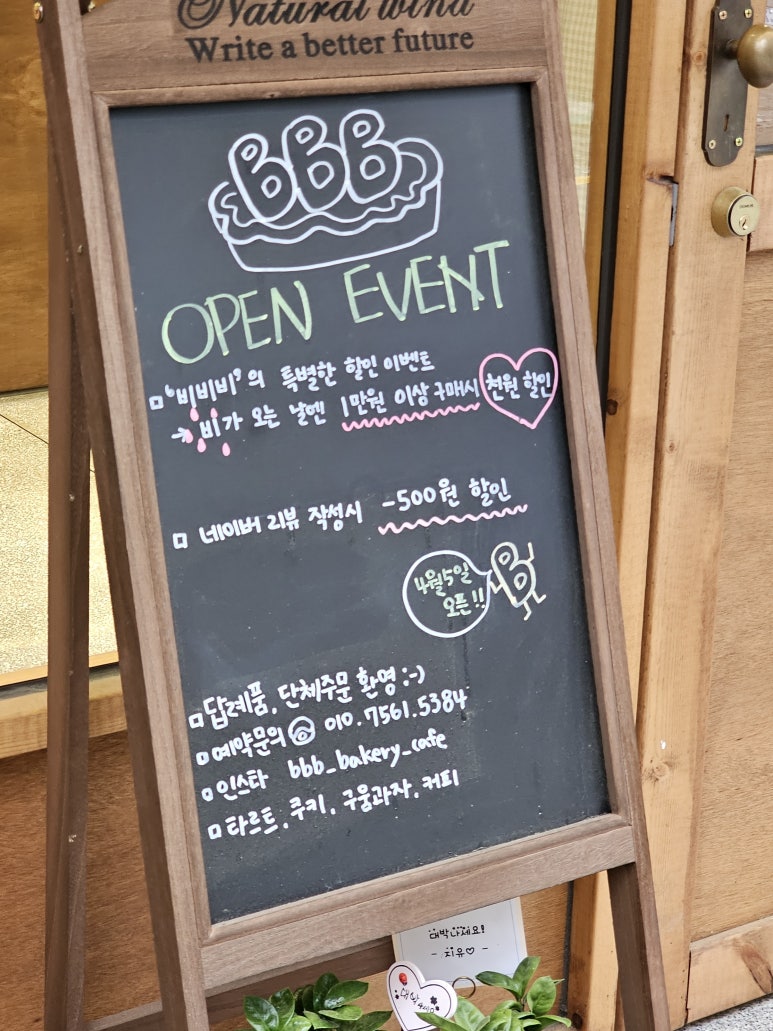 Natural wind
Write a better future
BBB
OPEN EVENT
'비비비'의 특별한 할인 이벤트
→ 비가 오는 날엔 1만원 이상 구매시 천원 할인
네이버 리뷰 작성시 -500원 할인
B
4월5일
오픈!!
답례품, 단체주문 환영 :-)
예약문의 010.7561.5384
인스타 bbb_bakery_cafe
타르트, 쿠키, 구움과자, 커피
대박나세요!
- 지유♡ -